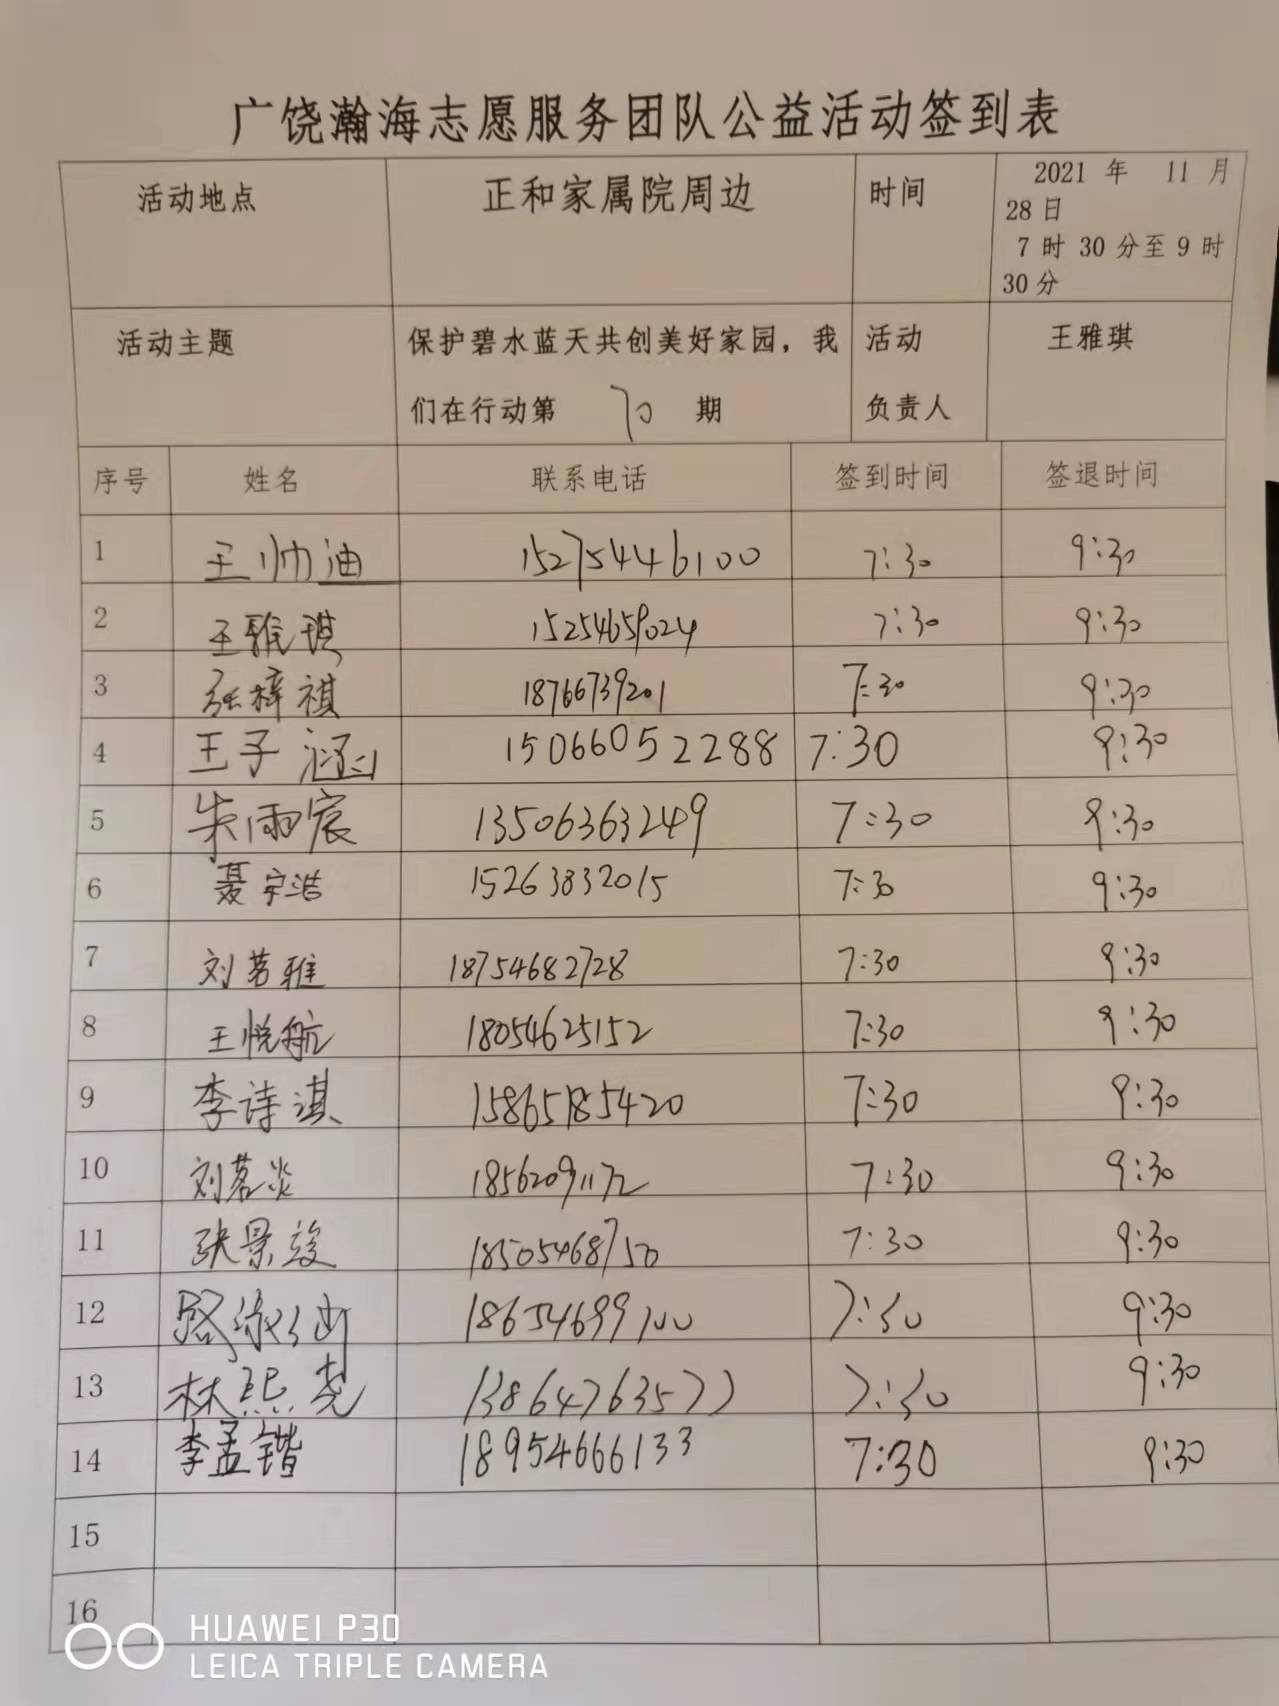 广饶瀚海志愿服务团队公益活动签到表
活动地点 正和家属院周边 时间 2021 年 11 月
28日
7 时 30 分至 9 时
30分
活动主题 保护碧水蓝天共创美好家园，我 活动 王雅琪
们在行动第 70 期 负责人
序号 姓名 联系电话 签到时间 签退时间
1 王帅油 15275446100 7:30 9:30
2 王雅琪 15254659024 7:30 9:30
3 张梓祺 18766739201 7:30 9:30
4 王子涵 15066052288 7:30 9:30
5 朱雨宸 13506363249 7:30 9:30
6 聂宇浩 15263832015 7:30 9:30
7 刘茗雅 18754682728 7:30 9:30
8 王悦航 18054625152 7:30 9:30
9 李诗淇 15865185420 7:30 9:30
10 刘茗炎 18562091172 7:30 9:30
11 张景竣 18505468750 7:30 9:30
12 18654699100 7:30 9:30
13 林熙尧 13864763577 7:30 9:30
14 李孟锴 18954666133 7:30 9:30
15
16
HUAWEI P30
LEICA TRIPLE CAMERA